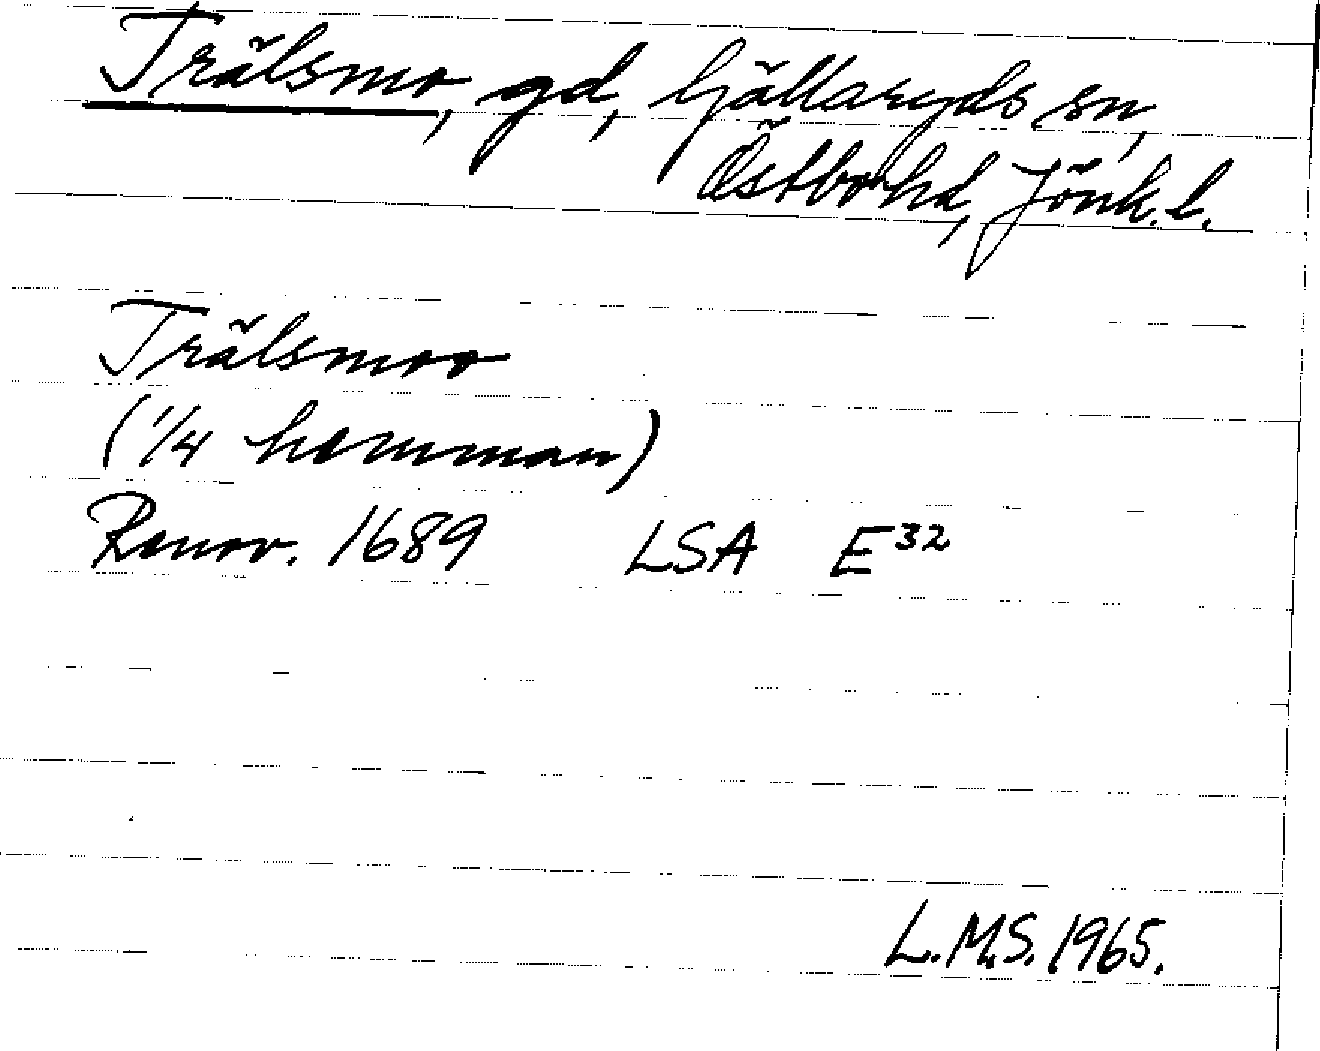 Trälsmo, gd, Gällaryds sn,
Östbo hd, Jönk. l.
Trälsmoo
(1/4 hemman)
Renov. 1689 LSA E³²
L.M.S. 1965.